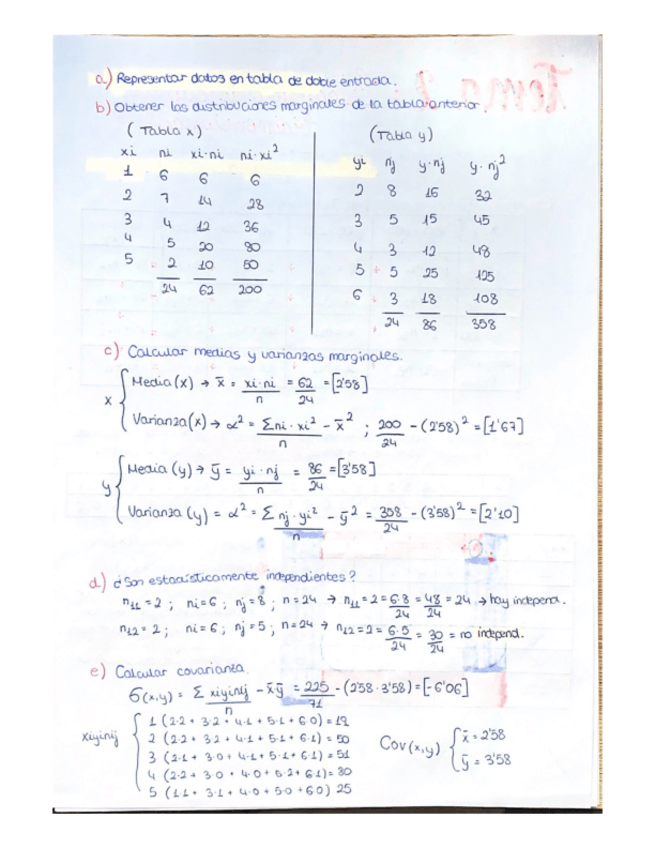 Tema 2
a) Representar datos en tabla de doble entrada.
b) Obtener las distribuciones marginales de la tabla anterior.
(Tabla x) (Tabla y)
xi ni xi·ni ni·xi² yi nj y·nj y·nj²
1 6 6 6
2 7 14 28
3 4 12 36
4 5 20 80
5 2 10 50
24 62 200
2 8 16 32
3 5 15 45
4 3 12 48
5 5 25 125
6 3 18 108
24 86 358
c) Calcular medias y varianzas marginales.
x { Media (x) → x̄ = xi·ni / n = 62/24 = [2'58]
Varianza (x) → α² = Σni·xi² / n - x̄² ; 200/24 - (2'58)² = [1'67]
y { Media (y) → ȳ = yi·nj / n = 86/24 = [3'58]
Varianza (y) = α² = Σ nj·yi² / n - ȳ² = 358/24 - (3'58)² = [2'10]
d) ¿Son estadísticamente independientes?
n11 = 2 ; ni = 6 ; nj = 8 ; n = 24 → n11 = 2 = 6·8/24 = 48/24 = 24 → hay independ.
n12 = 2 ; ni = 6 ; nj = 5 ; n = 24 → n12 = 2 = 6·5/24 = 30/24 = no independ.
e) Calcular covarianza.
σ(x,y) = Σ xiyinij / n - x̄ȳ = 225/71 - (2'58·3'58) = [-6'06]
xiyinij { 1 (2·2 + 3·2 + 4·1 + 5·1 + 6·0) = 19
2 (2·2 + 3·2 + 4·1 + 5·1 + 6·1) = 50
3 (2·1 + 3·0 + 4·1 + 5·1 + 6·1) = 51
4 (2·2 + 3·0 + 4·0 + 5·2 + 6·1) = 80
5 (1·1 + 3·1 + 4·0 + 5·0 + 6·0) 25
Cov(x,y) { x̄ = 2'58
ȳ = 3'58